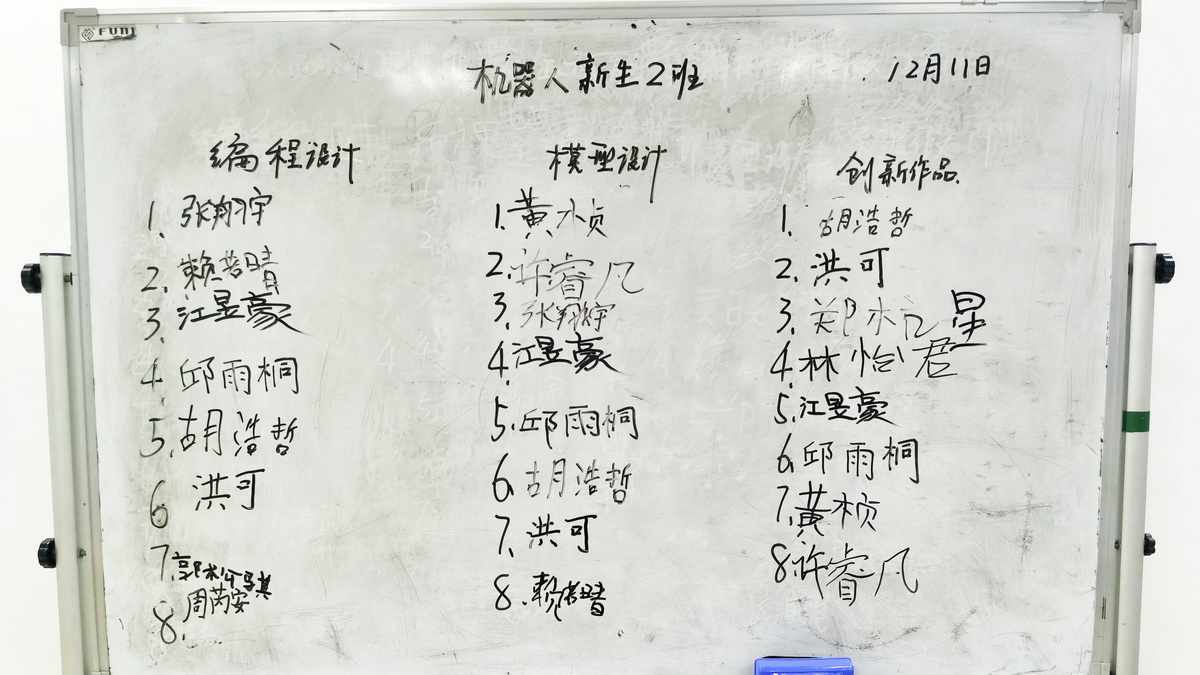 FUNI
机器人新生2班
12月11日
编程设计
1. 张翔宇
2. 赖若晴
3. 江昱豪
4. 邱雨桐
5. 胡浩哲
6 洪可
7.
8. 周芮安
模型设计
1. 黄桢
2. 许睿凡
3. 张翔宇
4. 江昱豪
5. 邱雨桐
6. 胡浩哲
7. 洪可
8. 赖若晴
创新作品.
1. 胡浩哲
2. 洪可
3. 郑杭星
4. 林怡君
5. 江昱豪
6. 邱雨桐
7. 黄桢
8 许睿凡